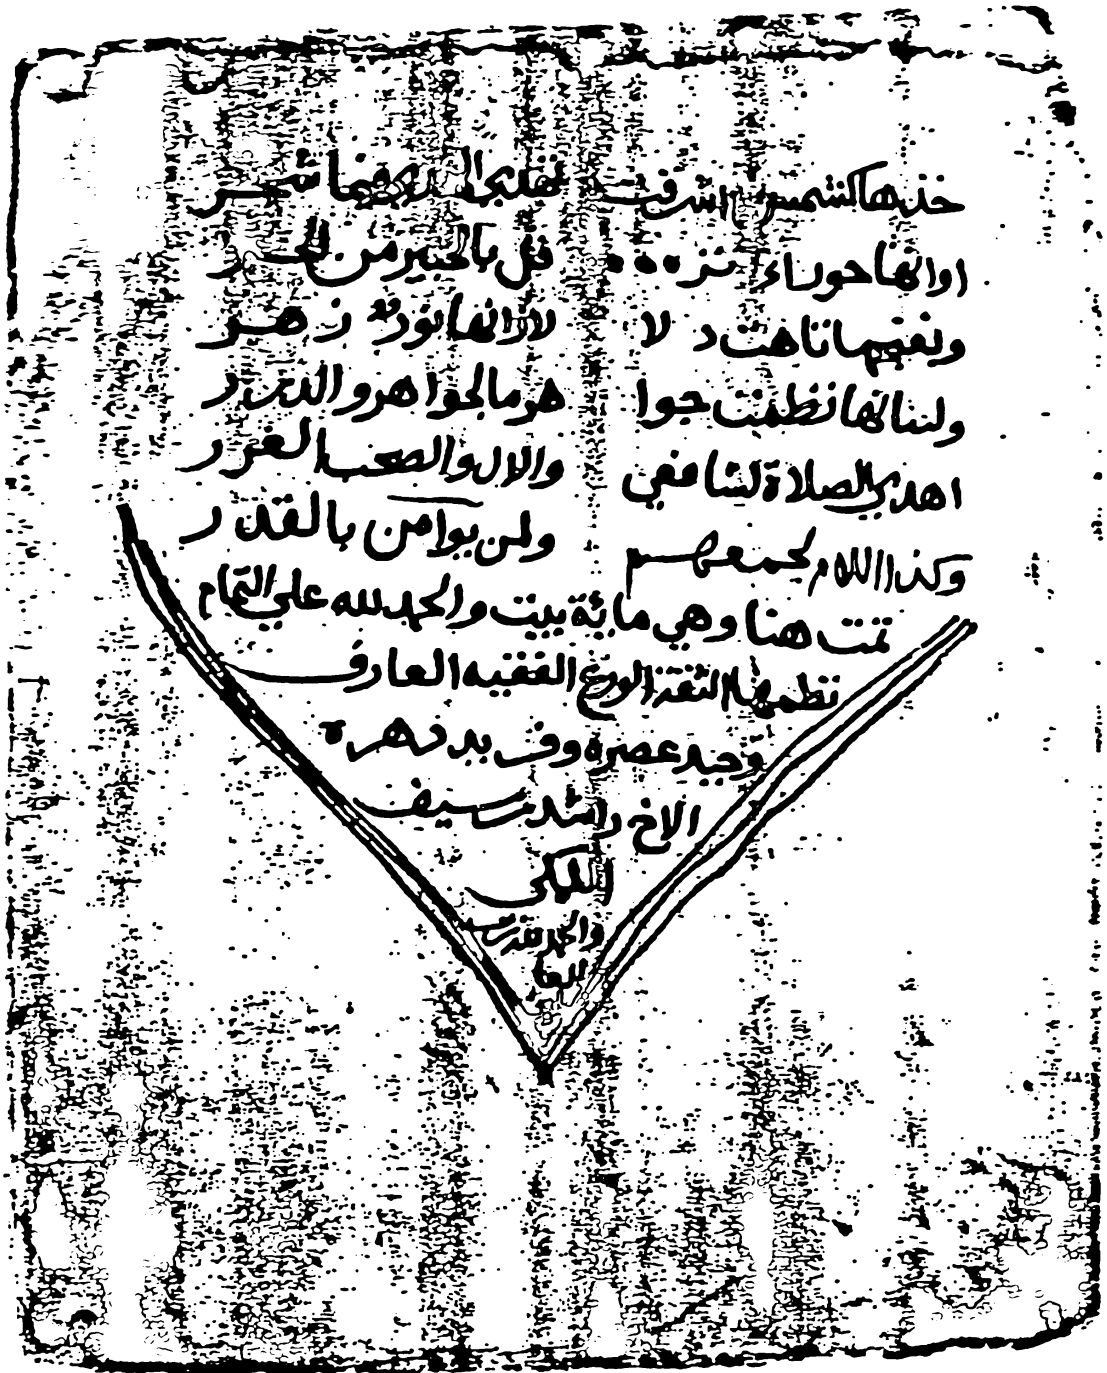 خذها كشمس اشرقت تهدي الذي فيها شجر
او انها حوراء تز... فل بالحبير من الحبر
ونفيها ناهت د لا لا زانها نور زهر
ولننا انها نظمت جوا هر ما الجواهر والدرر
اهدي الصلاة لشافعي والال والصحب الغرر
وكذا السلام لجمعهم ولمن يوامن بالقدر
تمت هنا وهي مائة بيت والحمد لله علي التمام
نظمها الثقة الورع الفقيه العارف
وحيد عصره وفريد دهره
الاخ راشد بن سيف
المكي
والحمد لله رب
العا